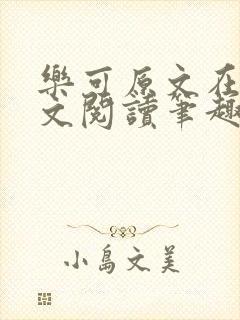 樂可原文在
文閱讀筆趣
小島文美